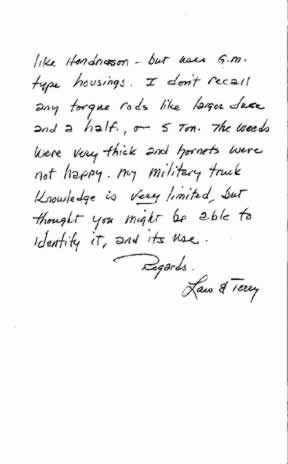 like Hendrickson - but uses G.M.
type housings. I don't recall
any torque rods like larger duce
and a half, or 5 Ton. The weeds
were very thick and hornets were
not happy. My military truck
knowledge is very limited, but
thought you might be able to
identify it, and its use.
Regards.
Lars & Terry